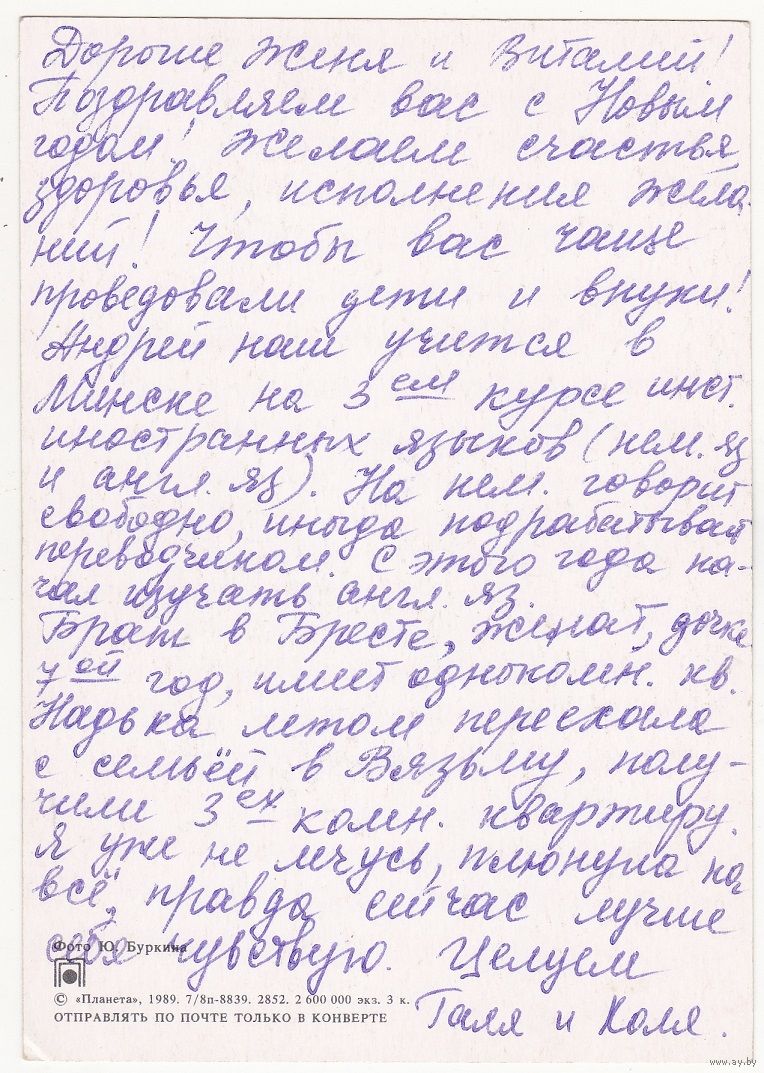 Дорогие Женя и Виталий!
Поздравляем вас с Новым
годом! Желаем счастья,
здоровья, исполнения жела-
ний! Чтобы вас чаще
проведовали дети и внуки!
Андрей наш учится в
Минске на 3ем курсе инст.
иностранных языков (нем. яз
и англ. яз). На нем. говорит
свободно, иногда подрабатывает
переводчиком. С этого года на-
чал изучать англ. яз.
Брат в Бресте, женат, дочке
7ой год, имеет однокомн. кв.
Надька летом переехала
с семьёй в Вязьму, полу-
чили 3ех комн. квартиру.
Я уже не лечусь, плюнула на
всё, правда сейчас лучше
себя чувствую. Целуем
Галя и Коля.
Фото Ю. Буркина
© «Планета», 1989. 7/8п-8839. 2852. 2 600 000 экз. 3 к.
ОТПРАВЛЯТЬ ПО ПОЧТЕ ТОЛЬКО В КОНВЕРТЕ
www.ay.by